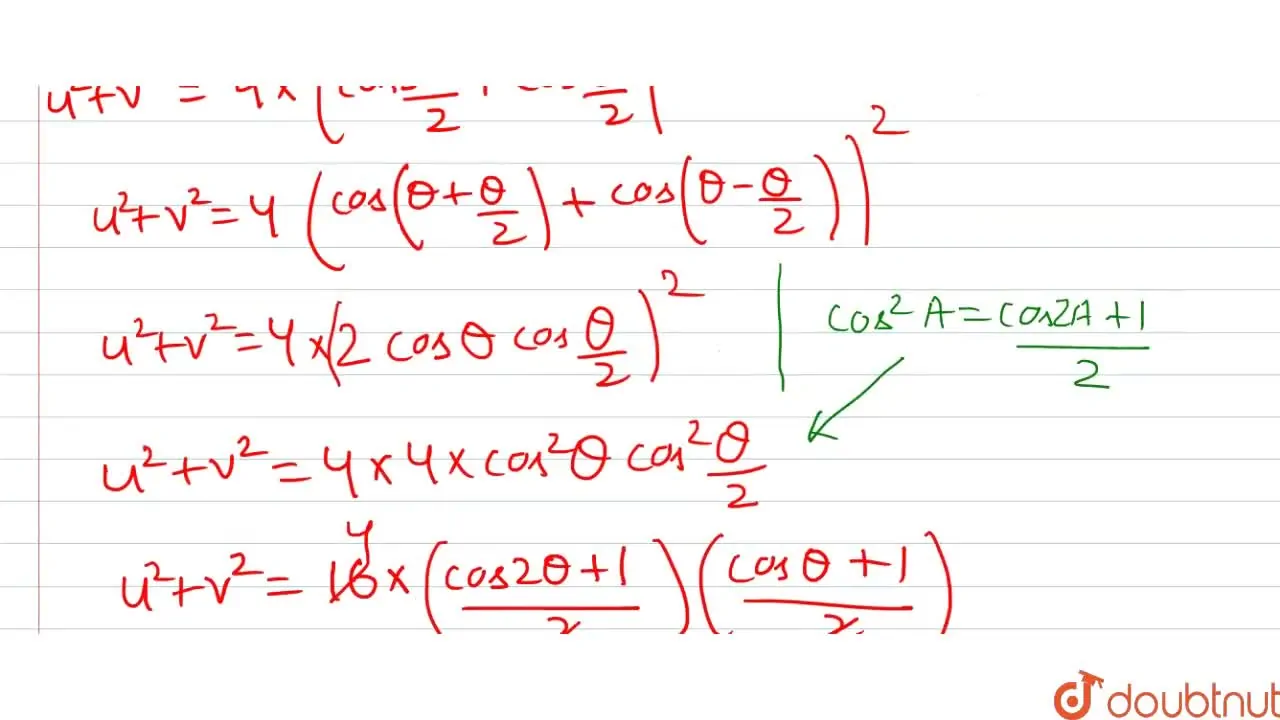 u²+v² = 4(cos(θ+θ/2)+cos(θ-θ/2))²
u²+v²=4×(2 cosθ cos θ/2)²
cos² A = cos2A+1/2
u²+v² = 4×4×cos²θ cos² θ/2
4
u²+v² = 16×(cos2θ+1/2)(cosθ+1/2)
doubtnut